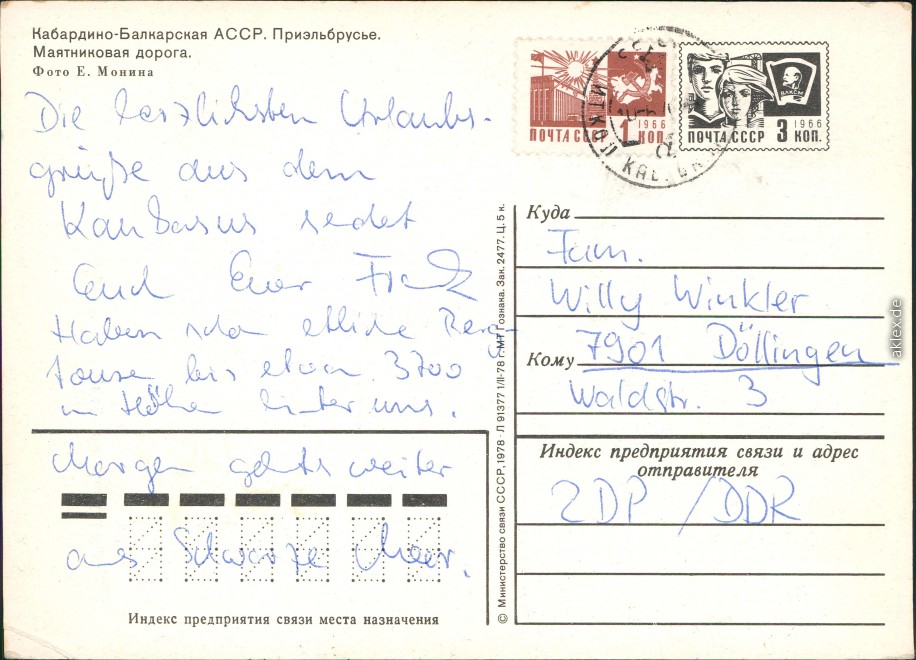 Кабардино-Балкарская АССР. Приэльбрусье.
Маятниковая дорога.
Фото Е. Монина
Die herzlichsten Urlaubs-
grüße aus dem
Kaukasus sedet
Euch Euer Frank
Haben schon etliche Berg-
touren bis etwa 3700
m Höhe hinter uns.
Morgen geht's weiter
ans Schwarze Meer.
Индекс предприятия связи места назначения
ПОЧТА СССР 1 КОП. 1966
ВЛКСМ
ПОЧТА СССР 3 КОП. 1966
ИТКОЛ КАБ.
© Министерство связи СССР, 1978 - Л 91377 1/II-78 г. МТ Гознака. Зак. 2477. Ц. 5 к.
Куда
Fam.
Willy Winkler
Кому 7901 Döllingen
Waldstr. 3
Индекс предприятия связи и адрес
отправителя
ZDP /DDR
aklex.de